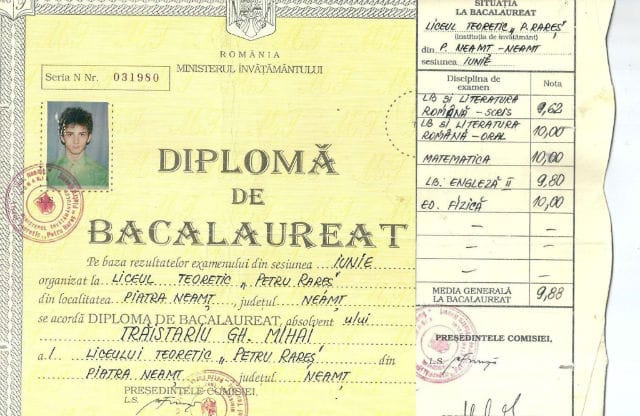 ROMÂNIA
MINISTERUL ÎNVĂŢĂMÂNTULUI
Seria N Nr. 031980
DIPLOMĂ
DE
BACALAUREAT
Pe baza rezultatelor examenului din sesiunea IUNIE
organizat la LICEUL TEORETIC „ PETRU RAREŞ"
din localitatea PIATRA NEAMŢ, judeţul NEAMŢ
se acordă DIPLOMA DE BACALAUREAT, absolvent ului
TRĂISTARIU GH. MIHAI
al LICEULUI TEORETIC „ PETRU RAREŞ" din
PIATRA NEAMŢ judeţul NEAMŢ
PREŞEDINTELE COMISIEI,
L.S.
SITUAŢIA
LA BACALAUREAT
LICEUL TEORETIC „ P. RAREŞ"
(instituţia de învăţământ)
din P. NEAMŢ - NEAMŢ
sesiunea IUNIE
Disciplina de examen Nota
LB ŞI LITERATURA ROMÂNĂ - SCRIS 9,62
LB ŞI LITERATURA ROMÂNĂ - ORAL 10,00
MATEMATICA 10,00
LB. ENGLEZĂ II 9,80
ED. FIZICĂ 10,00
MEDIA GENERALĂ LA BACALAUREAT 9,88
PREŞEDINTELE COMISIEI,
L.S.